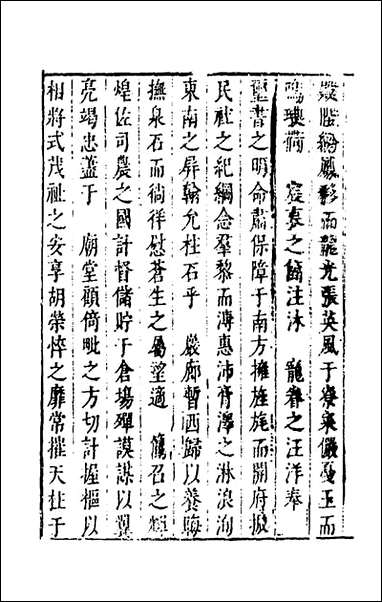 陛紛鳳彩而龍光張英風于寮寀儼曳玉而
鳴 荷 宸衷之簡注沐 寵眷之汪洋奉
璽書之明命肅保障于南方擁旌旄而開府振
民社之紀綱念羣黎而溥惠沛膏澤之淋浪洵
東南之屏翰允柱石乎 巖廊暫西歸以養晦
撫泉石而徜徉慰蒼生之曷望適 寵召之輝
煌佐司農之國計督儲貯于倉塲殫謨謀以翼
亮竭忠藎于 廟堂顧倚毗之方切計握樞以
相將式茂祉之安享胡榮悴之靡常摧天柱于